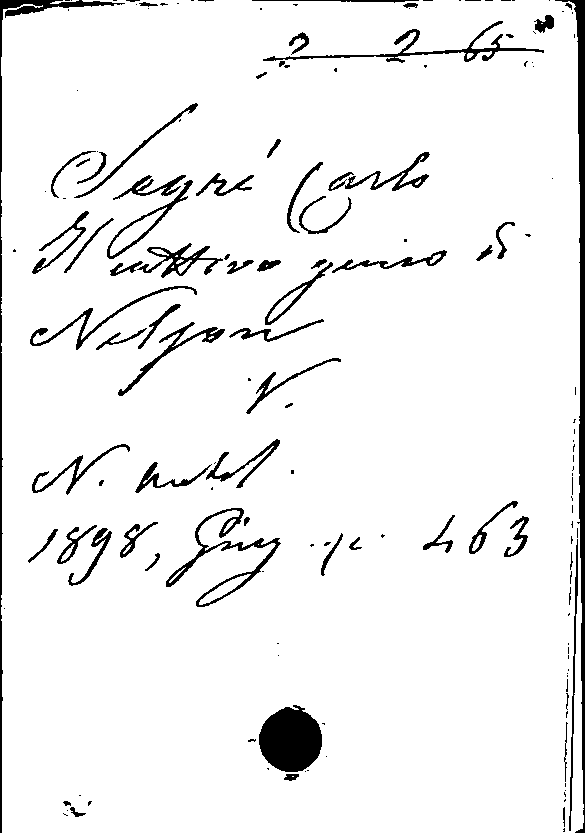 2 2 65
Segré Carlo
Il cattivo genio di
Nelson
V.
N. Antol.
1898, Giug. p. 463